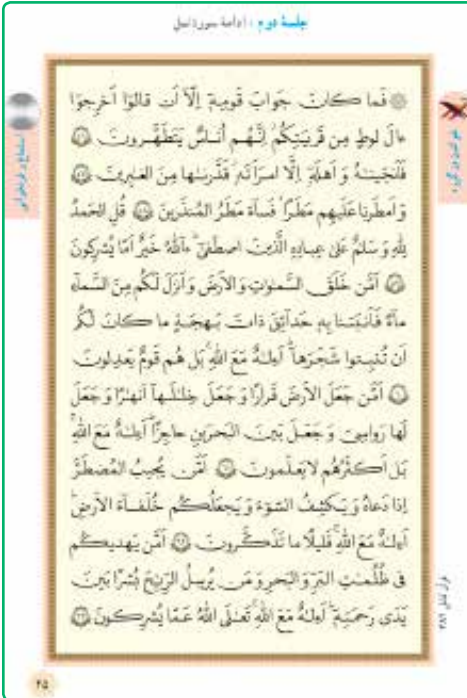 جلسهٔ دوم : ادامهٔ سورهٔ نمل
فَما كانَ جَوابَ قَومِهِ إِلّا أَن قالوا أَخرِجوا
ءالَ لوطٍ مِن قَريَتِكُم إِنَّهُم أُناسٌ يَتَطَهَّرونَ ٥٦
فَأَنجَينٰهُ وَ أَهلَهُ إِلَّا امرَأَتَهُ قَدَّرنٰها مِنَ الغٰبِرينَ ٥٧
وَ أَمطَرنا عَلَيهِم مَطَرًا فَساءَ مَطَرُ المُنذَرينَ ٥٨ قُلِ الحَمدُ
لِلّٰهِ وَ سَلٰمٌ عَلىٰ عِبادِهِ الَّذينَ اصطَفىٰ ءاللّٰهُ خَيرٌ أَمّا يُشرِكونَ
٥٩ أَمَّن خَلَقَ السَّمٰوٰتِ وَ الأَرضَ وَ أَنزَلَ لَكُم مِنَ السَّماءِ
ماءً فَأَنبَتنا بِهِ حَدائِقَ ذاتَ بَهجَةٍ ما كانَ لَكُم
أَن تُنبِتوا شَجَرَها أَءِلٰهٌ مَعَ اللّٰهِ بَل هُم قَومٌ يَعدِلونَ
٦٠ أَمَّن جَعَلَ الأَرضَ قَرارًا وَ جَعَلَ خِلٰلَها أَنهٰرًا وَ جَعَلَ
لَها رَوٰسِىَ وَ جَعَلَ بَينَ البَحرَينِ حاجِزًا أَءِلٰهٌ مَعَ اللّٰهِ
بَل أَكثَرُهُم لا يَعلَمونَ ٦١ أَمَّن يُجيبُ المُضطَرَّ
إِذا دَعاهُ وَ يَكشِفُ السّوءَ وَ يَجعَلُكُم خُلَفاءَ الأَرضِ
أَءِلٰهٌ مَعَ اللّٰهِ قَليلًا ما تَذَكَّرونَ ٦٢ أَمَّن يَهديكُم
فى ظُلُمٰتِ البَرِّ وَ البَحرِ وَ مَن يُرسِلُ الرِّيٰحَ بُشرًا بَينَ
يَدَى رَحمَتِهِ أَءِلٰهٌ مَعَ اللّٰهِ تَعٰلَى اللّٰهُ عَمّا يُشرِكونَ ٦٣
٣٨٢
۲۵